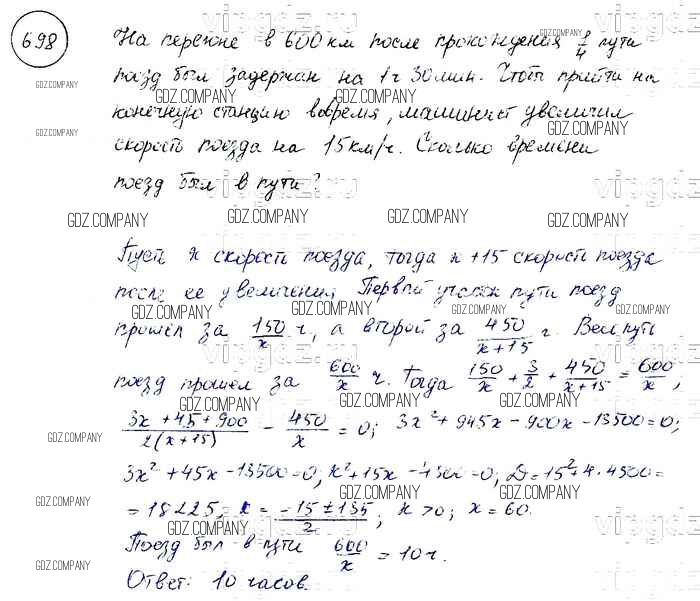 698
На перегоне в 600 км после прохождения 1/4 пути
поезд был задержан на 1 ч 30 мин. Чтобы прийти на
конечную станцию вовремя, машинист увеличил
скорость поезда на 15 км/ч. Сколько времени
поезд был в пути?
Пусть x скорость поезда, тогда x+15 скорость поезда
после ее увеличения. Первый участок пути поезд
прошел за 150/x ч, а второй за 450/(x+15) ч. Весь путь
поезд прошел за 600/x ч. Тогда 150/x + 3/2 + 450/(x+15) = 600/x;
(3x+45+900)/(2(x+15)) - 450/x = 0; 3x²+945x-900x-13500=0;
3x²+45x-13500=0; x²+15x-4500=0; D=15²+4·4500=
=18225; x = (-15±135)/2; x>0; x=60.
Поезд был в пути 600/x = 10 ч.
Ответ: 10 часов.
GDZ.COMPANY
vipgdz.ru